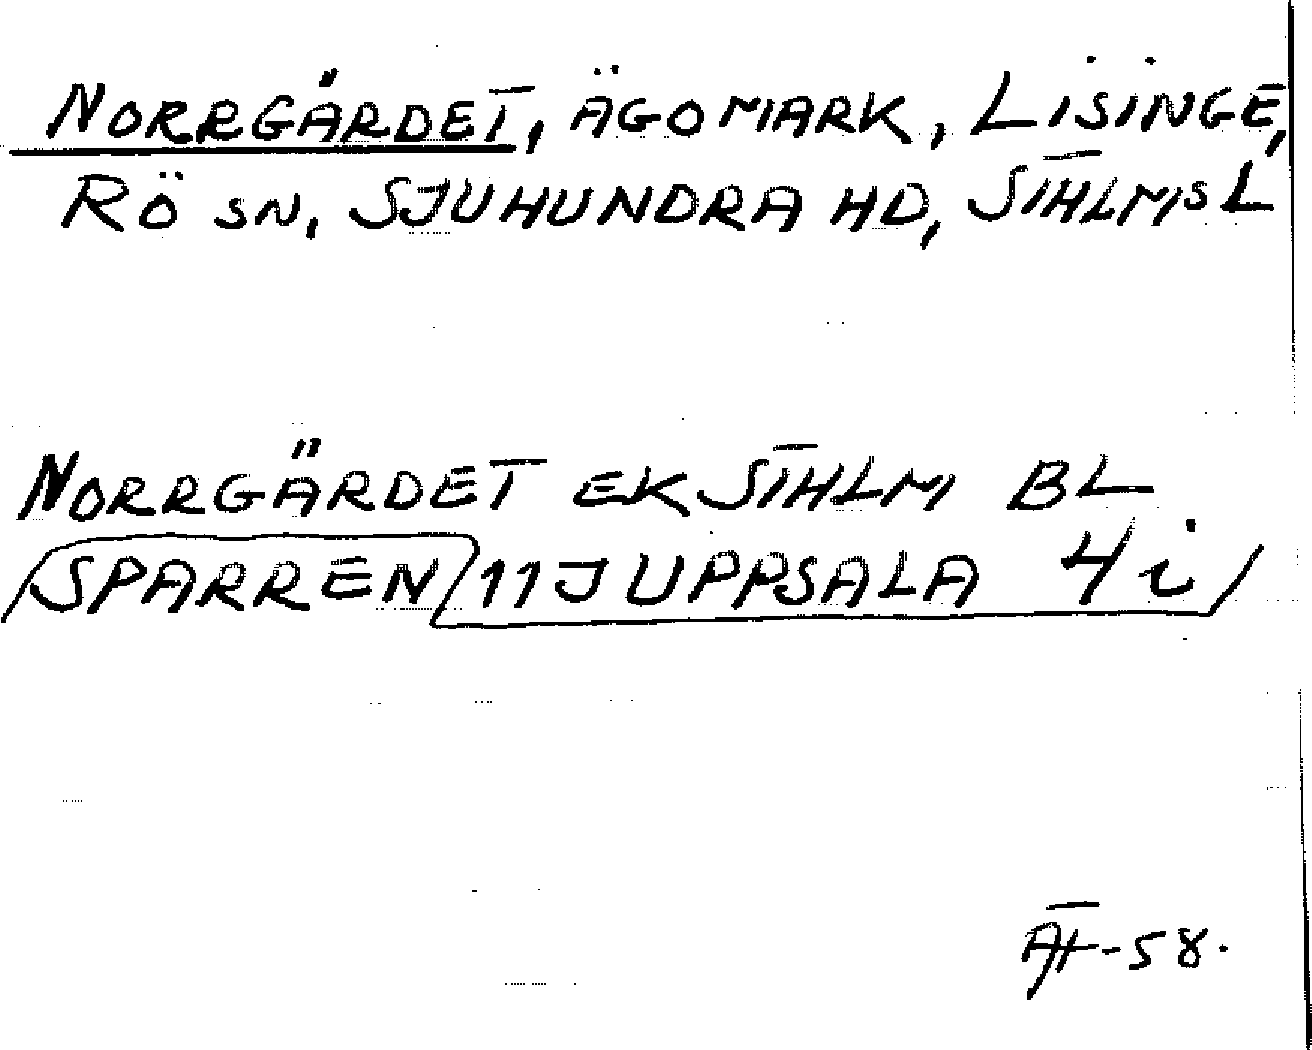 NORRGÄRDET, ÄGOMARK, LISINGE,
RÖ SN, SJUHUNDRA HD, STHLMS L
NORRGÄRDET EK STHLM BL
SPARREN/11J UPPSALA 4i/
-58.